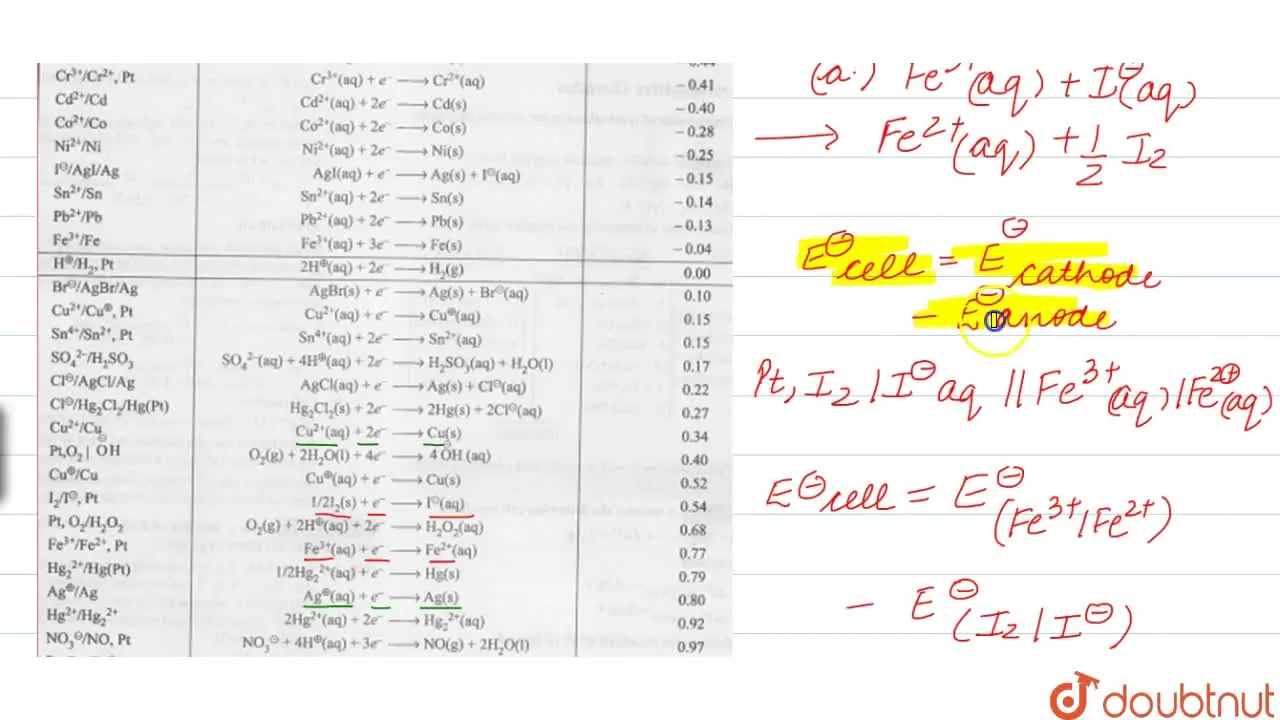 – 0.44
Cr³⁺/Cr²⁺, Pt Cr³⁺(aq) + e⁻ ⟶ Cr²⁺(aq) – 0.41
Cd²⁺/Cd Cd²⁺(aq) + 2e⁻ ⟶ Cd(s) – 0.40
Co²⁺/Co Co²⁺(aq) + 2e⁻ ⟶ Co(s) – 0.28
Ni²⁺/Ni Ni²⁺(aq) + 2e⁻ ⟶ Ni(s) – 0.25
I⊖/AgI/Ag AgI(aq) + e⁻ ⟶ Ag(s) + I⊖(aq) – 0.15
Sn²⁺/Sn Sn²⁺(aq) + 2e⁻ ⟶ Sn(s) – 0.14
Pb²⁺/Pb Pb²⁺(aq) + 2e⁻ ⟶ Pb(s) – 0.13
Fe³⁺/Fe Fe³⁺(aq) + 3e⁻ ⟶ Fe(s) – 0.04
H⊕/H₂, Pt 2H⊕(aq) + 2e⁻ ⟶ H₂(g) 0.00
Br⊖/AgBr/Ag AgBr(s) + e⁻ ⟶ Ag(s) + Br⊖(aq) 0.10
Cu²⁺/Cu⊕, Pt Cu²⁺(aq) + e⁻ ⟶ Cu⊕(aq) 0.15
Sn⁴⁺/Sn²⁺, Pt Sn⁴⁺(aq) + 2e⁻ ⟶ Sn²⁺(aq) 0.15
SO₄²⁻/H₂SO₃ SO₄²⁻(aq) + 4H⊕(aq) + 2e⁻ ⟶ H₂SO₃(aq) + H₂O(l) 0.17
Cl⊖/AgCl/Ag AgCl(aq) + e⁻ ⟶ Ag(s) + Cl⊖(aq) 0.22
Cl⊖/Hg₂Cl₂/Hg(Pt) Hg₂Cl₂(s) + 2e⁻ ⟶ 2Hg(s) + 2Cl⊖(aq) 0.27
Cu²⁺/Cu Cu²⁺(aq) + 2e⁻ ⟶ Cu(s) 0.34
Pt,O₂| ⊖OH O₂(g) + 2H₂O(l) + 4e⁻ ⟶ 4 ⊖OH (aq) 0.40
Cu⊕/Cu Cu⊕(aq) + e⁻ ⟶ Cu(s) 0.52
I₂/I⊖, Pt 1/2I₂(s) + e⁻ ⟶ I⊖(aq) 0.54
Pt, O₂/H₂O₂ O₂(g) + 2H⊕(aq) + 2e⁻ ⟶ H₂O₂(aq) 0.68
Fe³⁺/Fe²⁺, Pt Fe³⁺(aq) + e⁻ ⟶ Fe²⁺(aq) 0.77
Hg₂²⁺/Hg(Pt) 1/2Hg₂²⁺(aq) + e⁻ ⟶ Hg(s) 0.79
Ag⊕/Ag Ag⊕(aq) + e⁻ ⟶ Ag(s) 0.80
Hg²⁺/Hg₂²⁺ 2Hg²⁺(aq) + 2e⁻ ⟶ Hg₂²⁺(aq) 0.92
NO₃⊖/NO, Pt NO₃⊖ + 4H⊕(aq) + 3e⁻ ⟶ NO(g) + 2H₂O(l) 0.97
(a.) Fe³⁺(aq) + I⊖(aq)
⟶ Fe²⁺(aq) + 1/2 I₂
E⊖cell = E⊖cathode
– E⊖anode
Pt, I₂ / I⊖ aq // Fe³⁺(aq) / Fe²⁺(aq)
E⊖cell = E⊖(Fe³⁺/Fe²⁺)
– E⊖(I₂/I⊖)
doubtnut